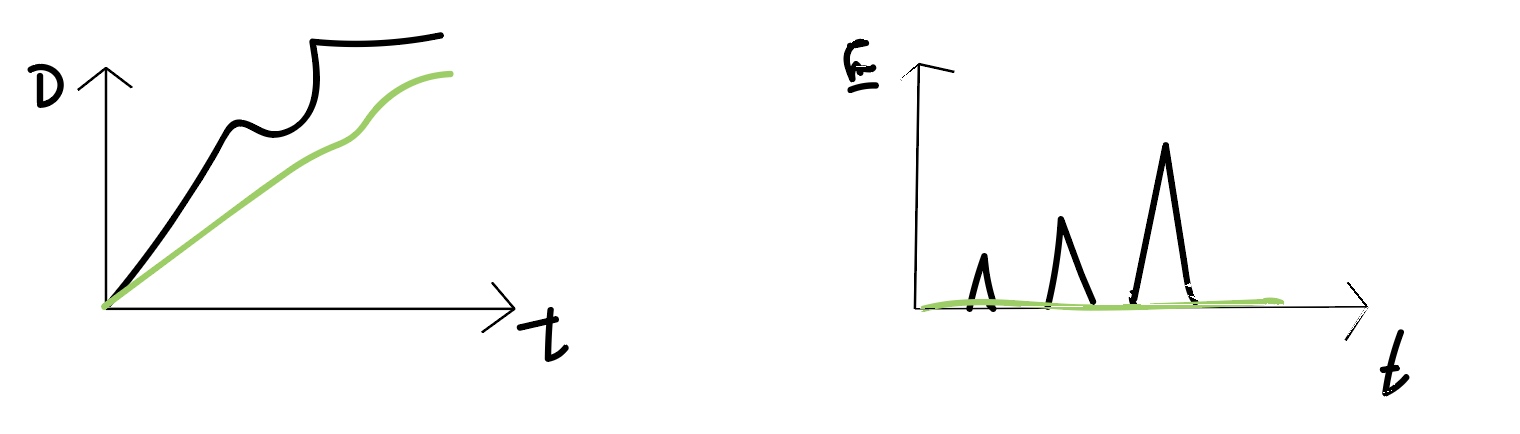 D
t
E
t